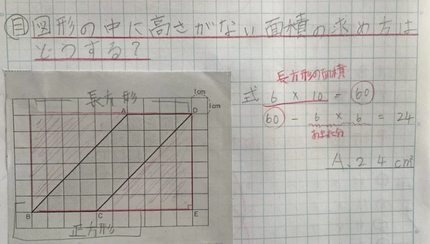 目 図形の中に高さがない面積の求め方は
どうする?
長方形
1cm
1cm
A
D
B
C
E
正方形
長方形の面積
式 6 × 10 = 60
60 - 6 × 6 = 24
A. 24 cm²